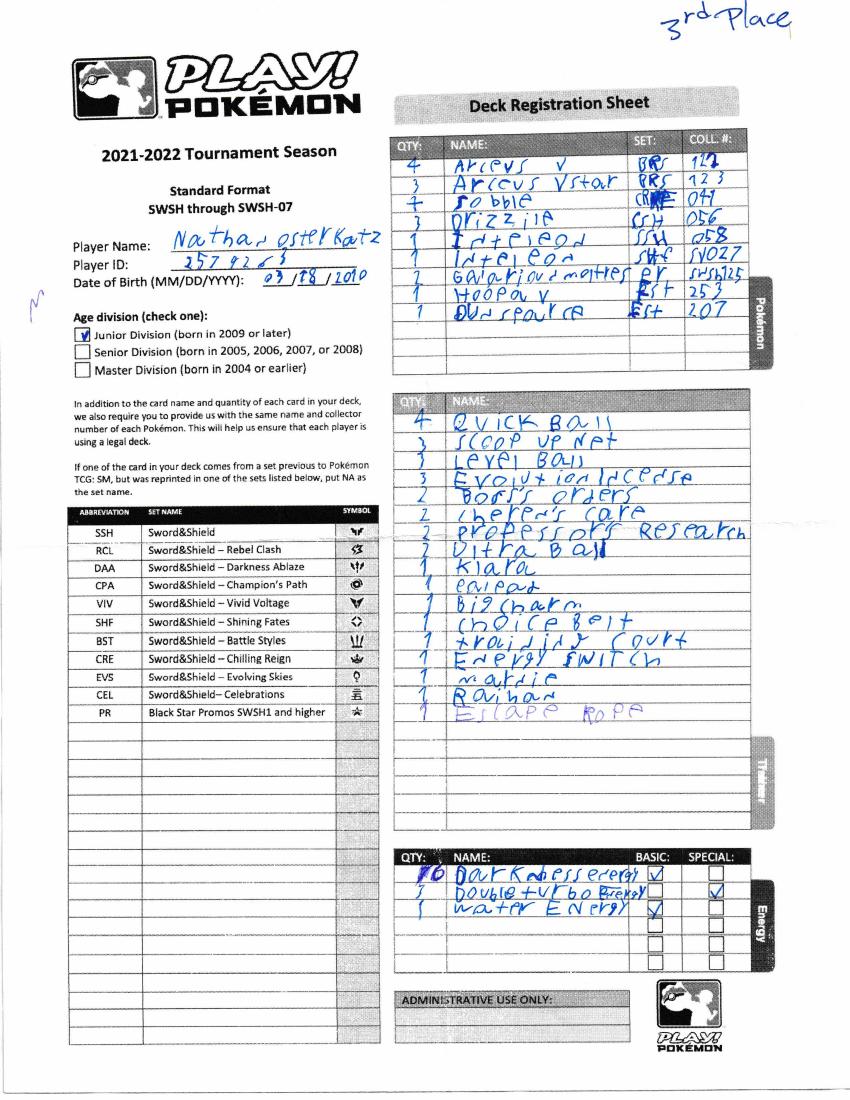 3rd Place
PLAY!
POKÉMON
2021-2022 Tournament Season
Standard Format
SWSH through SWSH-07
Player Name: Nathan Osterkatz
Player ID:
Date of Birth (MM/DD/YYYY): 03/18/2010
Age division (check one):
Junior Division (born in 2009 or later)
Senior Division (born in 2005, 2006, 2007, or 2008)
Master Division (born in 2004 or earlier)
In addition to the card name and quantity of each card in your deck,
we also require you to provide us with the same name and collector
number of each Pokémon. This will help us ensure that each player is
using a legal deck.
If one of the card in your deck comes from a set previous to Pokémon
TCG: SM, but was reprinted in one of the sets listed below, put NA as
the set name.
ABBREVIATION SET NAME SYMBOL
SSH Sword&Shield
RCL Sword&Shield – Rebel Clash
DAA Sword&Shield – Darkness Ablaze
CPA Sword&Shield – Champion's Path
VIV Sword&Shield – Vivid Voltage
SHF Sword&Shield – Shining Fates
BST Sword&Shield – Battle Styles
CRE Sword&Shield – Chilling Reign
EVS Sword&Shield – Evolving Skies
CEL Sword&Shield– Celebrations
PR Black Star Promos SWSH1 and higher
Deck Registration Sheet
QTY: NAME: SET: COLL. #:
4 Arceus V BRS
3 Arceus Vstar BRS 123
4 Sobble 041
3 Drizzile SSH 056
1 Inteleon SSH 058
1 Inteleon SHF SV027
2 Galarian moltres Pr SWSH125
1 Hoopa V 253
1 Dunsparce 207
Pokémon
QTY: NAME:
4 Quick Ball
3 Scoop up Net
Level Ball
3 Evolution Incense
2 Boss's orders
2 cheren's care
2 professor's Research
2 Ultra Ball
1 Klara
1
1 Big charm
1 choice Belt
1 training Court
1 Energy SWITCH
1 marnie
1 Raihan
1 Escape Rope
Trainer
QTY: NAME: BASIC: SPECIAL:
Darkness energy
3 Double turbo Energy
1 water Energy
Energy
ADMINISTRATIVE USE ONLY:
PLAY!
POKÉMON